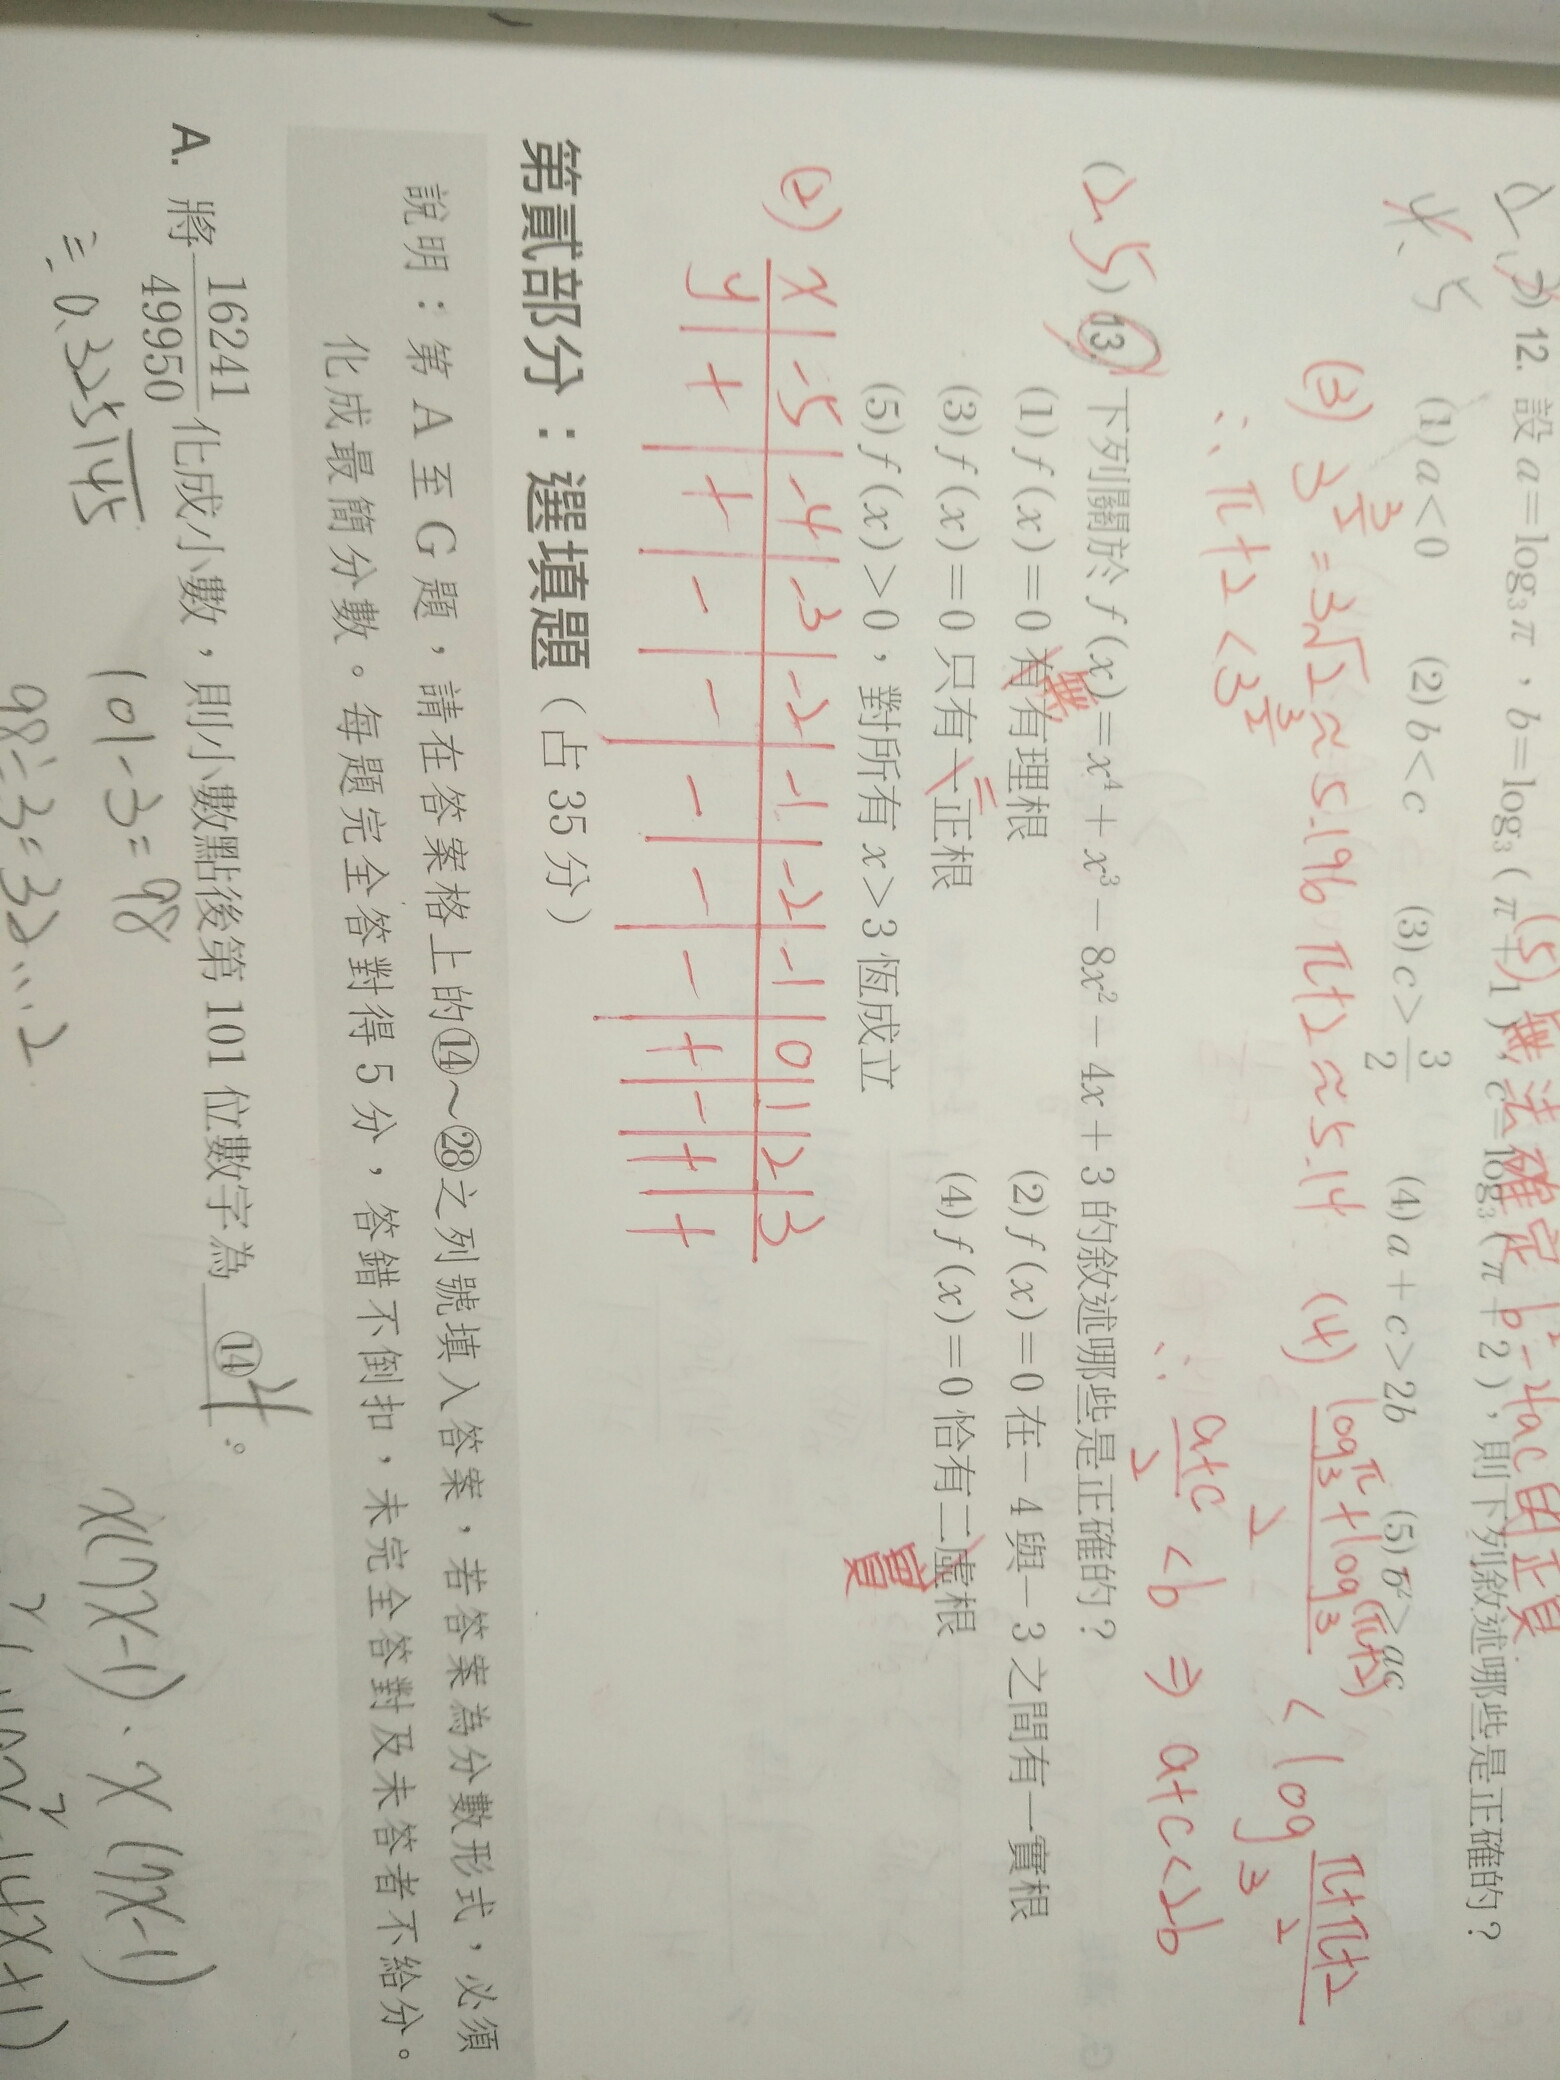 (5) 無法確定 b²-4ac 的正負
12. 設 a=log₃π,b=log₃(π+1),c=log₃(π+2),則下列敘述哪些是正確的?
4、5
(1) a<0 (2) b<c (3) c>3/2 (4) a+c>2b (5) b²>ac
(3) 3^(3/2) = 3√2 ≈ 5.196 π+2 ≈ 5.14 (4) (log₃π+log₃(π+2))/2 < log₃ (π+π+2)/2
∴ π+2 < 3^(3/2)
∴ (a+c)/2 < b ⇒ a+c<2b
(2、5) 13. 下列關於 f(x)=x⁴+x³-8x²-4x+3 的敘述哪些是正確的?
無
(1) f(x)=0 有有理根 (2) f(x)=0 在-4 與-3 之間有一實根
二
(3) f(x)=0 只有一正根 (4) f(x)=0 恰有二虛根
實
(5) f(x)>0,對所有 x>3 恆成立
(2) x | -5 | -4 | -3 | -2 | -1 | -2 | -1 | 0 | 1 | 2 | 3
y | + | + | - | - | - | - | - | + | - | + | +
第貳部分:選填題(占 35 分)
說明:第 A 至 G 題,請在答案格上的⑭~㉘之列號填入答案,若答案為分數形式,必須
化成最簡分數。每題完全答對得 5 分,答錯不倒扣,未完全答對及未答者不給分。
A. 將 16241/49950 化成小數,則小數點後第 101 位數字為 ⑭ 4 。
= 0.325145
101-3=98
98÷3=32...2